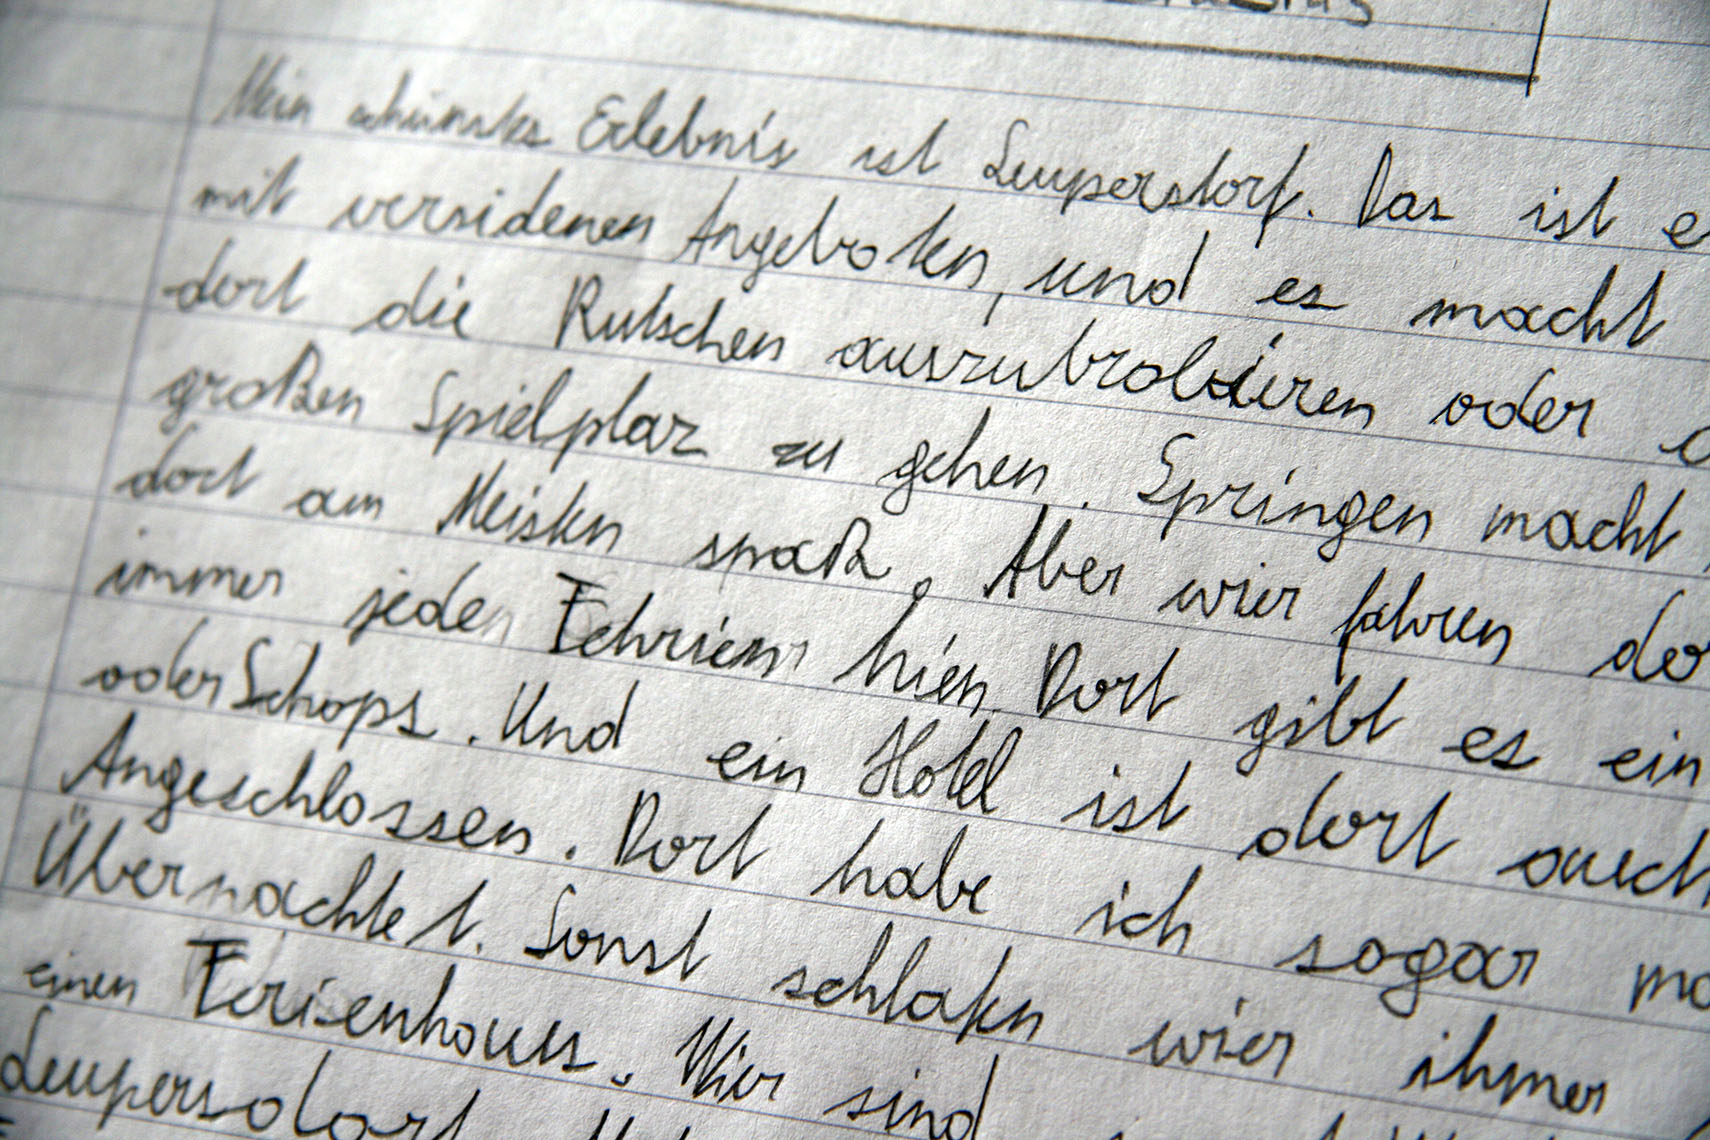 Mein schünstes Erlebnis ist Leupersdorf. Das ist
mit versidenen Angeboten, und es macht
dort die Rutschen auszubrobieren oder
großen Spielplaz zu gehen. Springen macht
dort am Meisten spaß. Aber wier fahren
immer jede Fehrien hien. Dort gibt es ein
oder Schops. Und ein Hotel ist dort auch
Angeschlossen. Dort habe ich sogar
Übernachtet. Sonst schlafen wier ihmer
einen Ferisenhaus. Wier sind
Leupersdorf